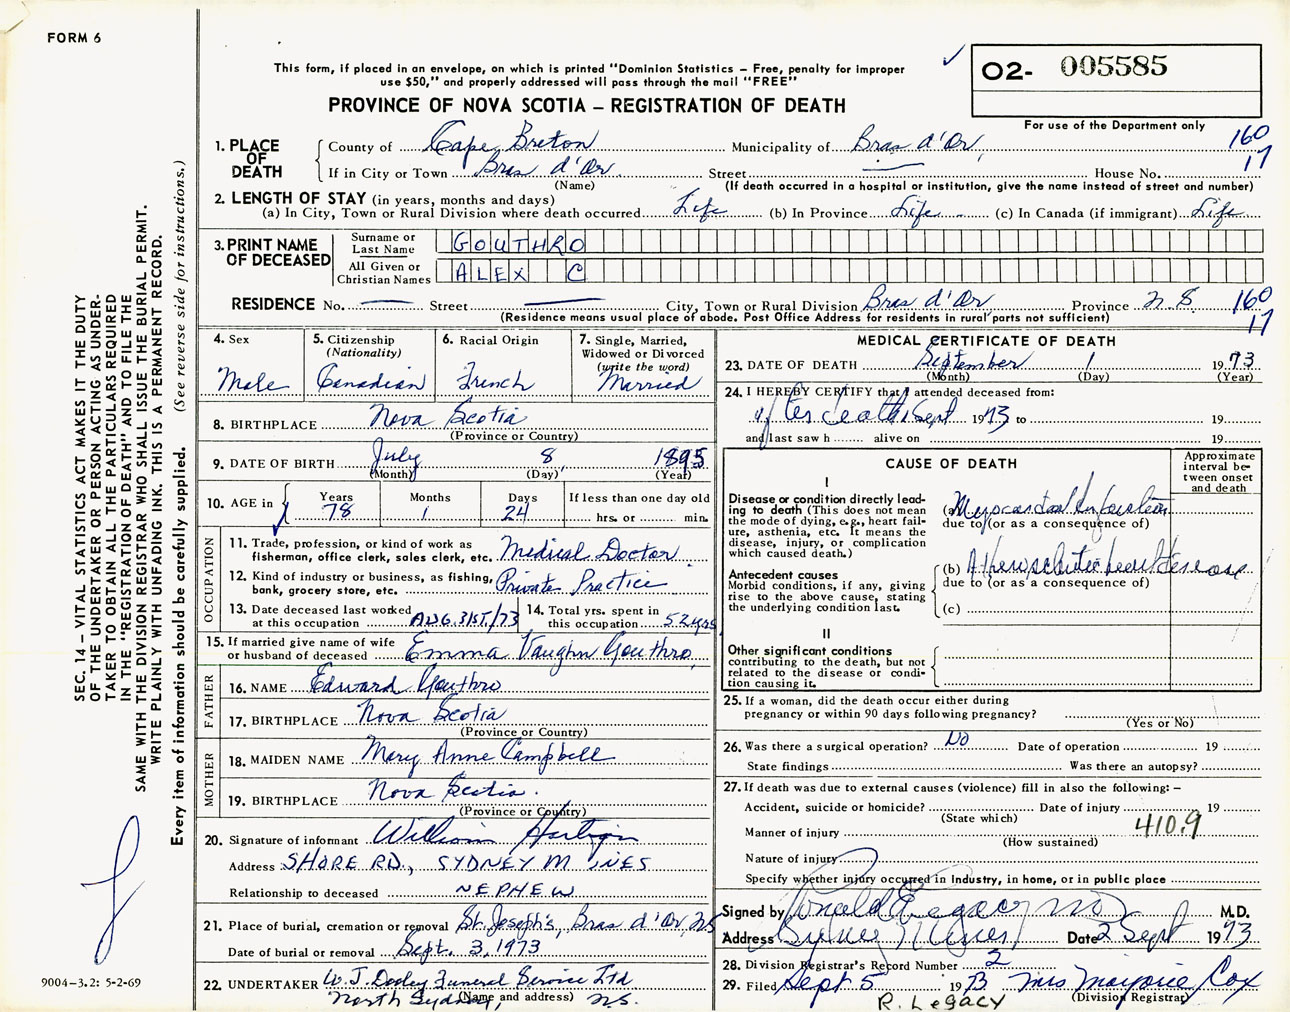 FORM 6
This form, if placed in an envelope, on which is printed "Dominion Statistics – Free, penalty for improper
use $50," and properly addressed will pass through the mail "FREE"
O2- 005585
PROVINCE OF NOVA SCOTIA – REGISTRATION OF DEATH
For use of the Department only
1. PLACE OF DEATH County of Cape Breton Municipality of Bras d'Or, 160
If in City or Town Bras d'Or Street — House No. 17
(Name) (If death occurred in a hospital or institution, give the name instead of street and number)
2. LENGTH OF STAY (in years, months and days)
(a) In City, Town or Rural Division where death occurred Life (b) In Province Life (c) In Canada (if immigrant) Life
3. PRINT NAME OF DECEASED Surname or Last Name GOUTHRO
All Given or Christian Names ALEX C
RESIDENCE No. — Street — City, Town or Rural Division Bras d'Or, Province N.S 160
(Residence means usual place of abode. Post Office Address for residents in rural parts not sufficient) 17
4. Sex Male
5. Citizenship (Nationality) Canadian
6. Racial Origin French
7. Single, Married, Widowed or Divorced (write the word) Married
8. BIRTHPLACE Nova Scotia
(Province or Country)
9. DATE OF BIRTH July 8, 1895
(Month) (Day) (Year)
10. AGE in Years 78 Months 1 Days 24 If less than one day old
hrs. or min.
OCCUPATION
11. Trade, profession, or kind of work as
fisherman, office clerk, sales clerk, etc. Medical Doctor
12. Kind of industry or business, as fishing,
bank, grocery store, etc. Private Practice
13. Date deceased last worked
at this occupation AUG. 31ST./73
14. Total yrs. spent in
this occupation 52 yrs
15. If married give name of wife
or husband of deceased Emma Vaughn Gouthro
FATHER
16. NAME Edward Gouthro
17. BIRTHPLACE Nova Scotia
(Province or Country)
MOTHER
18. MAIDEN NAME Mary Anne Campbell
19. BIRTHPLACE Nova Scotia.
(Province or Country)
20. Signature of informant William
Address SHORE RD., SYDNEY MINES
Relationship to deceased NEPHEW
21. Place of burial, cremation or removal St. Joseph's, Bras d'Or, NS
Date of burial or removal Sept. 3, 1973
22. UNDERTAKER W. J. Dooley Funeral Service Ltd
North Sydney, N.S.
(Name and address)
MEDICAL CERTIFICATE OF DEATH
23. DATE OF DEATH September 1 1973
(Month) (Day) (Year)
24. I HEREBY CERTIFY that I attended deceased from:
after death Sept 1973 to 19
and last saw h alive on 19
CAUSE OF DEATH
Approximate interval between onset and death
I
Disease or condition directly lead-
ing to death (This does not mean
the mode of dying, e.g., heart fail-
ure, asthenia, etc. It means the
disease, injury, or complication
which caused death.)
(a) Myocardial Infarction
due to (or as a consequence of)
Antecedent causes
Morbid conditions, if any, giving
rise to the above cause, stating
the underlying condition last.
(b) Atherosclerotic heart disease
due to (or as a consequence of)
(c)
II
Other significant conditions
contributing to the death, but not
related to the disease or condi-
tion causing it.
25. If a woman, did the death occur either during
pregnancy or within 90 days following pregnancy?
(Yes or No)
26. Was there a surgical operation? No Date of operation 19
State findings Was there an autopsy?
27. If death was due to external causes (violence) fill in also the following: –
Accident, suicide or homicide? Date of injury 19
(State which)
Manner of injury 410.9
(How sustained)
Nature of injury
Specify whether injury occurred in industry, in home, or in public place
Signed by Ronald Legacy MD M.D.
Address Sydney Mines Date 2 Sept 1973
28. Division Registrar's Record Number 2
29. Filed Sept 5 1973 Mrs Marjorie Cox
(Division Registrar)
R. LEGACY
SEC. 14 – VITAL STATISTICS ACT MAKES IT THE DUTY
OF THE UNDERTAKER OR PERSON ACTING AS UNDER-
TAKER TO OBTAIN ALL THE PARTICULARS REQUIRED
IN THE "REGISTRATION OF DEATH" AND TO FILE THE
SAME WITH THE DIVISION REGISTRAR WHO SHALL ISSUE THE BURIAL PERMIT.
WRITE PLAINLY WITH UNFADING INK. THIS IS A PERMANENT RECORD.
Every item of information should be carefully supplied. (See reverse side for instructions.)
9004–3.2: 5-2-69